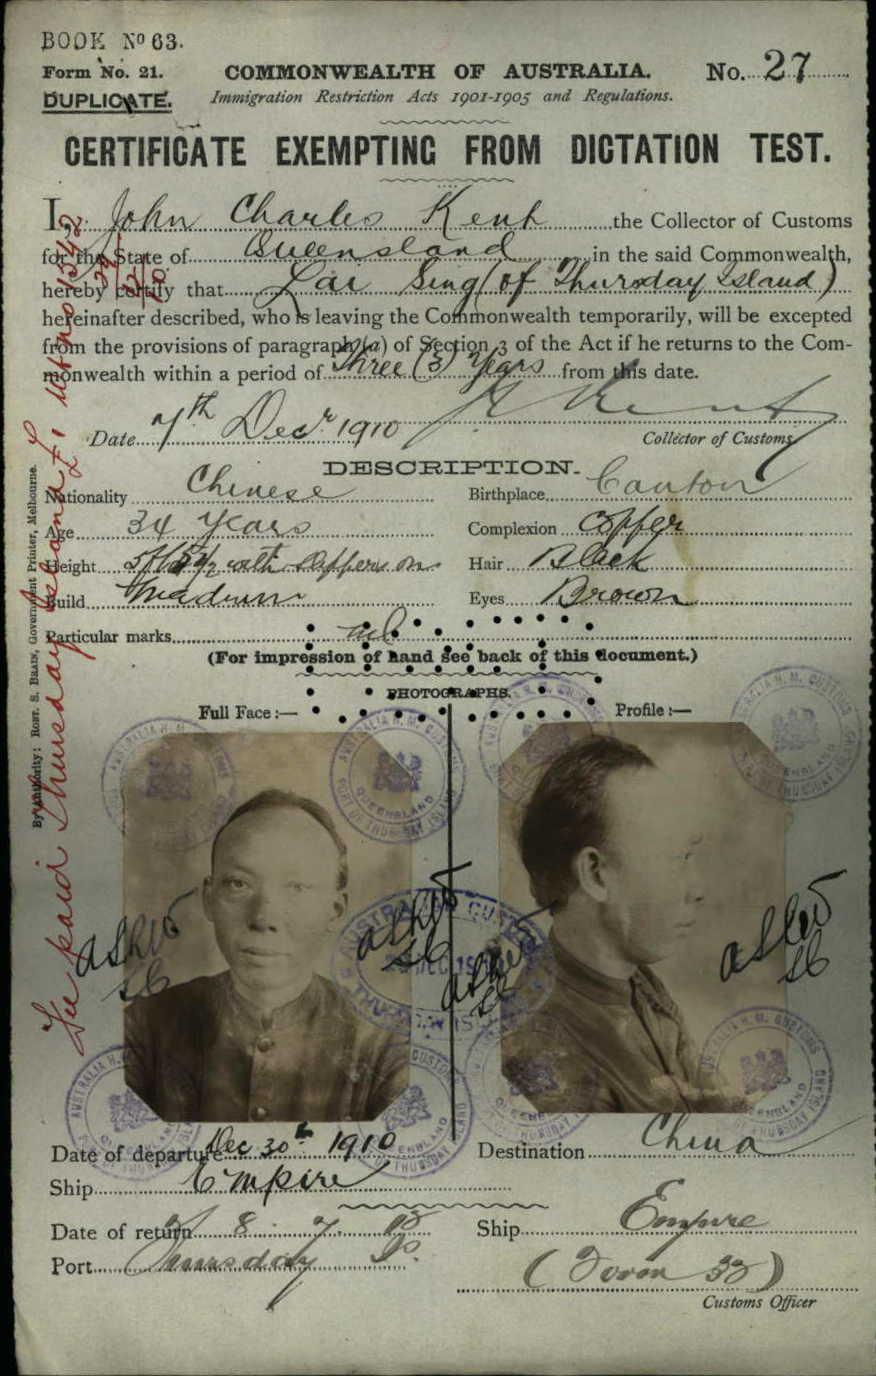 BOOK No 63.
Form No. 21.
COMMONWEALTH OF AUSTRALIA.
No. 27
DUPLICATE.
Immigration Restriction Acts 1901-1905 and Regulations.
CERTIFICATE EXEMPTING FROM DICTATION TEST.
I, John Charles Kent the Collector of Customs
for the State of Queensland in the said Commonwealth,
hereby certify that Lai Sing (of Thursday Island)
hereinafter described, who is leaving the Commonwealth temporarily, will be excepted
from the provisions of paragraph (a) of Section 3 of the Act if he returns to the Com-
monwealth within a period of Three (3) Years from this date.
Date 7th Decr 1910
Collector of Customs.
DESCRIPTION.
Nationality Chinese
Birthplace Canton
Age 34 Years
Complexion Copper
Height 5ft 5½ with slippers on
Hair Black
Build Medium
Eyes Brown
Particular marks nil
(For impression of hand see back of this document.)
PHOTOGRAPHS.
Full Face :—
Profile :—
By Authority: ROBT. S. BRAIN, Government Printer, Melbourne.
Fee paid Thursday Island
AUSTRALIA H. M. CUSTOMS
PORT OF THURSDAY ISLAND
QUEENSLAND
Date of departure Dec 30th 1910
Destination China
Ship Empire
Date of return 8 7 13
Ship Empire
Port Thursday Is.
(Form 32)
Customs Officer